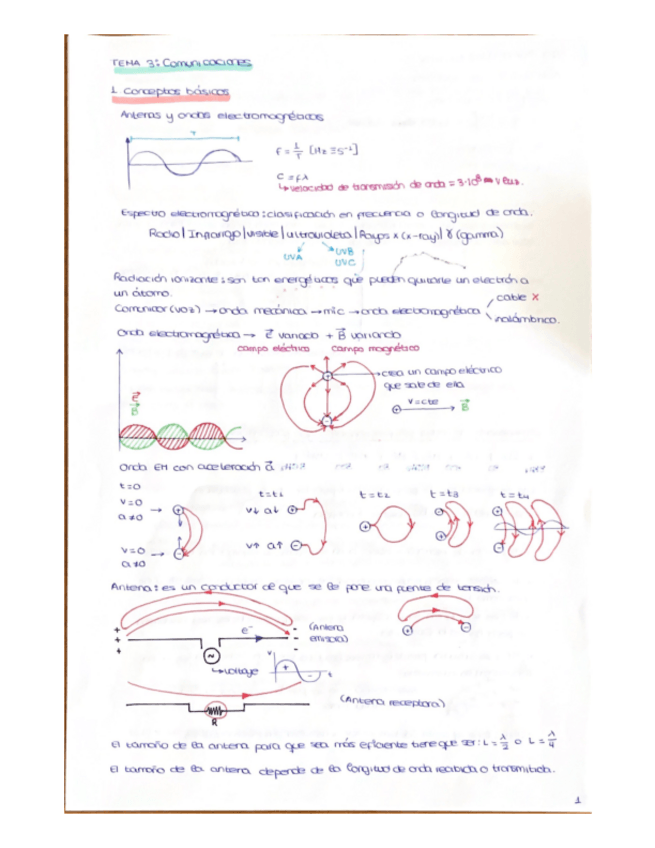 TEMA 3: Comunicaciones
1. Conceptos básicos
Antenas y ondas electromagnéticas
T
F = 1/T [Hz ≡ S⁻¹]
C = fλ
↳ velocidad de transmisión de onda = 3·10⁸
Espectro electromagnético: clasificación en frecuencia o longitud de onda.
Radio | Infrarrojo | visible | ultravioleta | Rayos x (x-ray) | γ (gamma)
UVA UVB
UVC
Radiación ionizante: son tan energéticos que pueden quitarle un electrón a
un átomo.
Comunicar (voz) → onda mecánica → mic → onda electromagnética
cable X
inalámbrico.
Onda electromagnética → E variando + B variando
campo eléctrico campo magnético
E
B
+
-
→ crea un campo eléctrico
que sale de ella
v = cte
+ → B
Onda EM con aceleración a
t=0
v=0
a≠0
v=0
a≠0
t=t1
v↓ a↓
v↑ a↑
t=t2
t=t3
t=t4
Antena: es un conductor de que se le pone una fuente de tensión.
+
+
+
e⁻
-
-
-
(Antena
emisora)
~
↳ voltaje
v
+
-
t
+
-
R
(Antena receptora)
El tamaño de la antena para que sea más eficiente tiene que ser: L = λ/2 o L = λ/4
El tamaño de la antena depende de la longitud de onda recibida o transmitida.
1